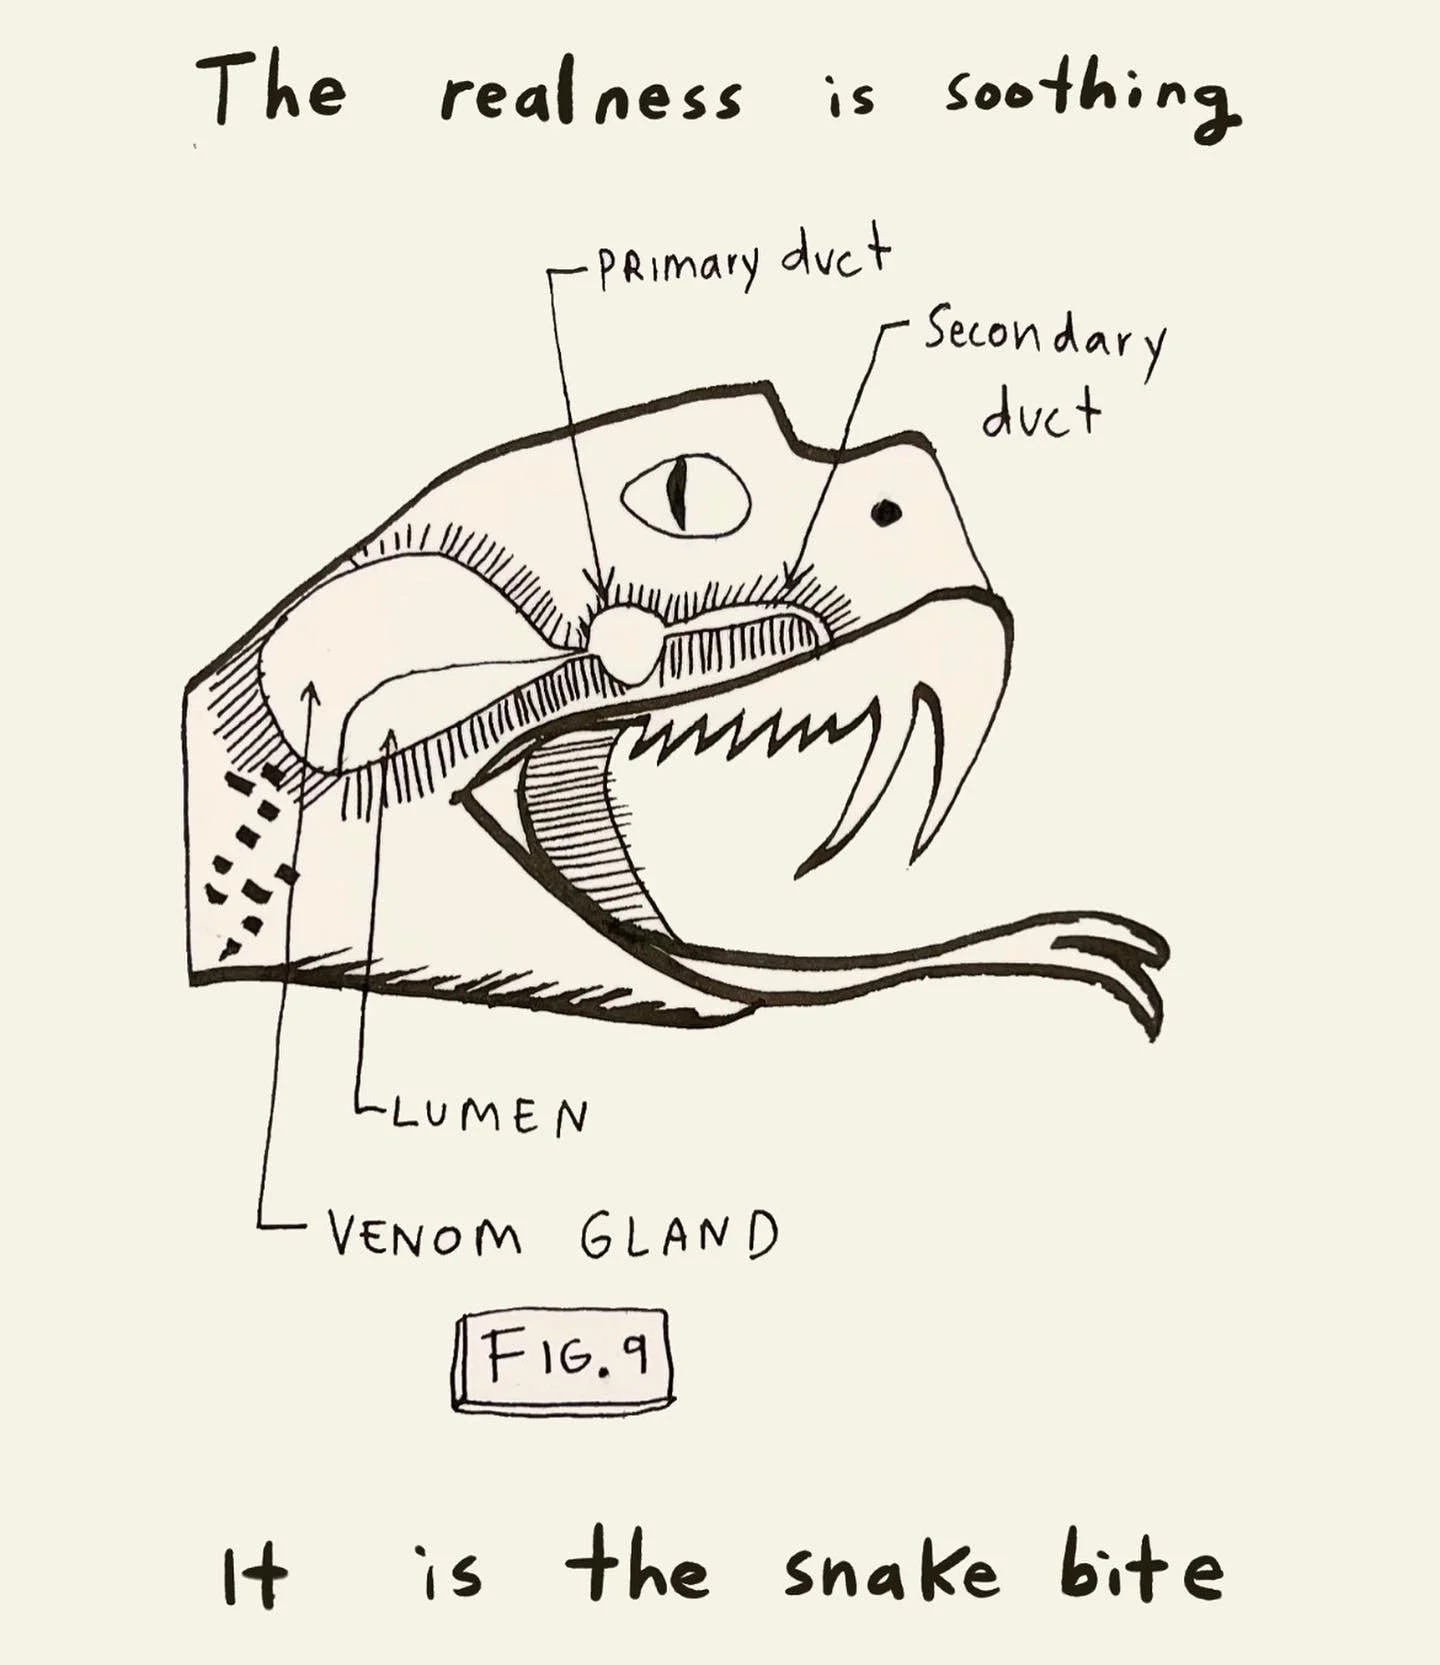 The realness is soothing
PRImary duct
Secondary
duct
LUMEN
VENOM GLAND
FIG. 9
It is the snake bite